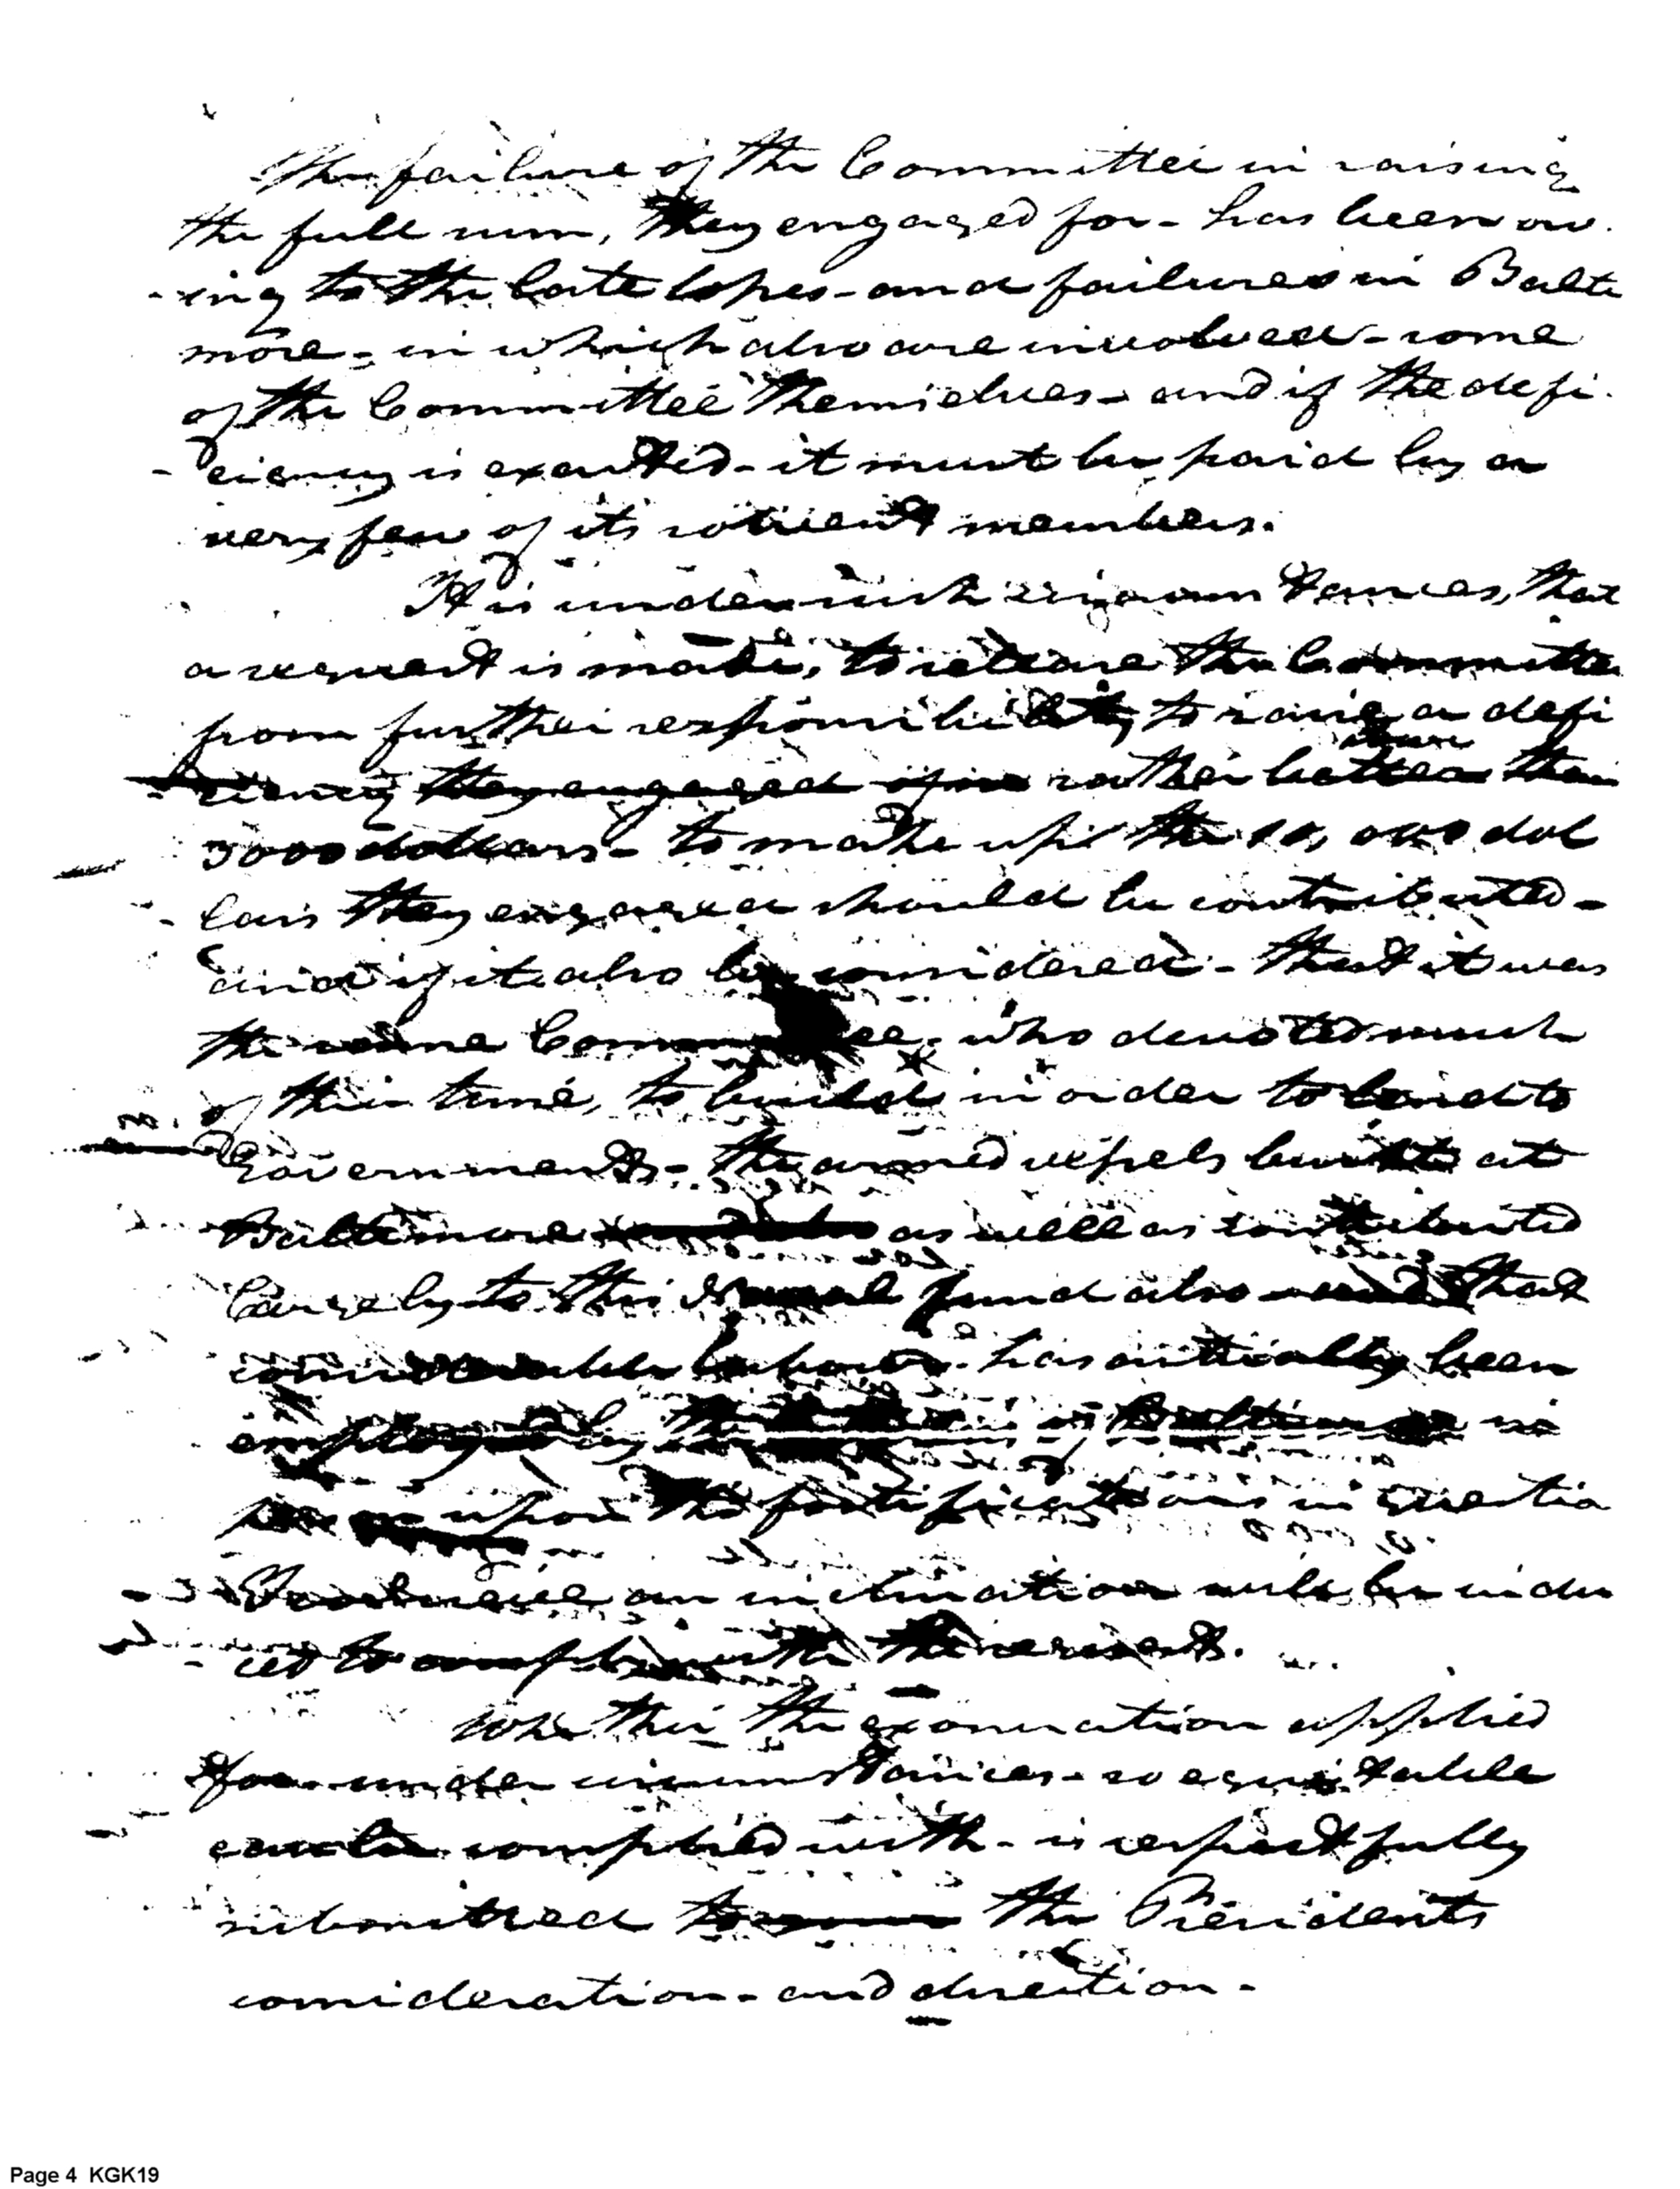 The failure of the Committee in raising
the full sum, they engaged for - has been ow.
-ing to the late losses - and failures in Balti
more - in which also are involved - some
of the Committee themselves - and if the defi.
-ciency is exacted - it must be paid by a
very few of its solvent members.
It is under such circumstances, that
a request is made, to release the Committee
from further responsibility, to raise a defi
-ciency they engaged rather better than
3000 dollars - to make up the dol
lars they engaged should be contributed -
and if it also be considered - that it was
the same Committee, who devoted much
of their time, to build in order to lend to
Government - the armed vessels built at
Baltimore as well as contributed
largely to this fund also that
considerable labour - has actually been
employed by the
upon the fortifications in questio
an inclination will be indu
ced to comply with the request.
Whether the exoneration applied
for under circumstances - so equitable
can be complied with - is respectfully
submitted to the Presidents
consideration - and direction -
Page 4 KGK19